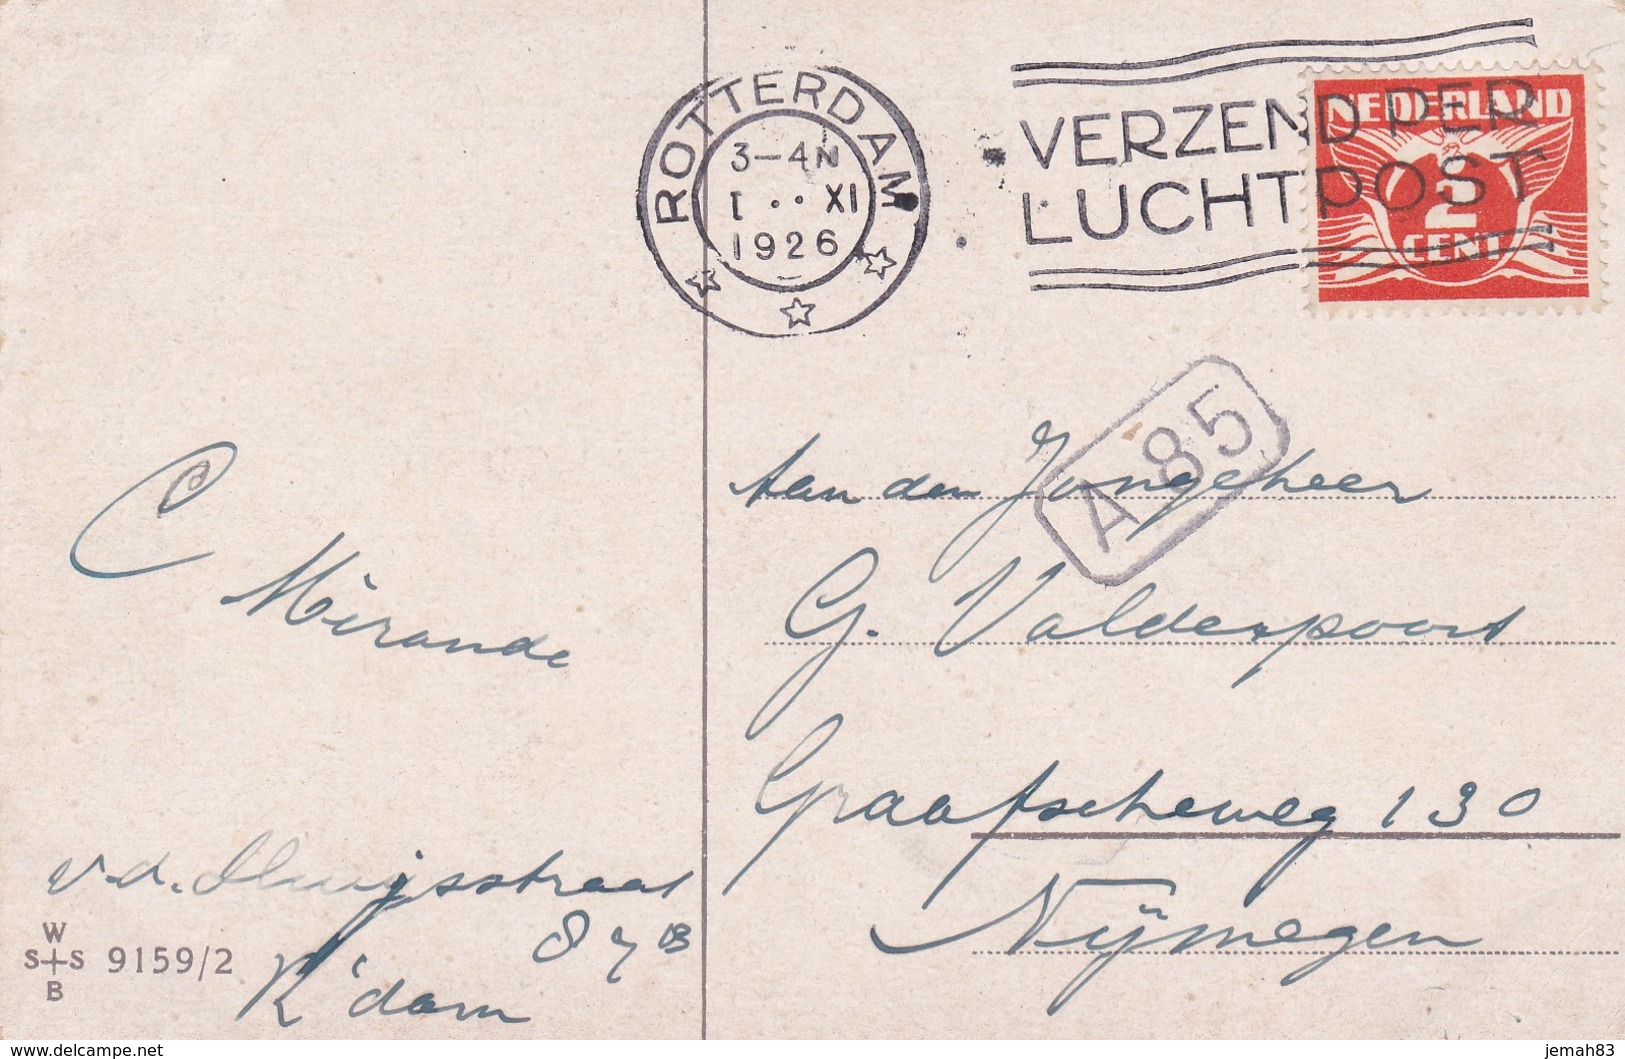 ROTTERDAM
3-4N
1 · · XI
1926
VERZEND PER
LUCHTPOST
NEDERLAND
2
CENT
A 85
Aan den Jongeheer
G. Valderpoort
Graafscheweg 130
Nijmegen
C Mirande
v.d. straat
87B
R'dam
W
S S
B
9159/2
www.delcampe.net
jemah83